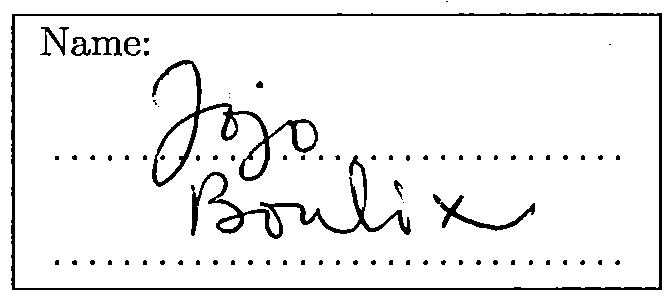 Name:
Jojo
Boulix